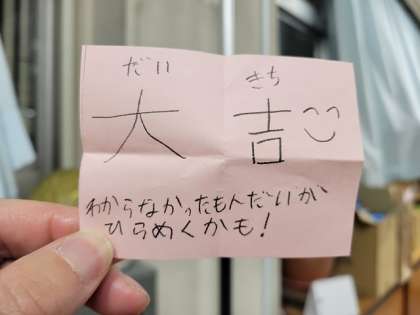 だい きち
大 吉
わからなかったもんだいが
ひらめくかも!